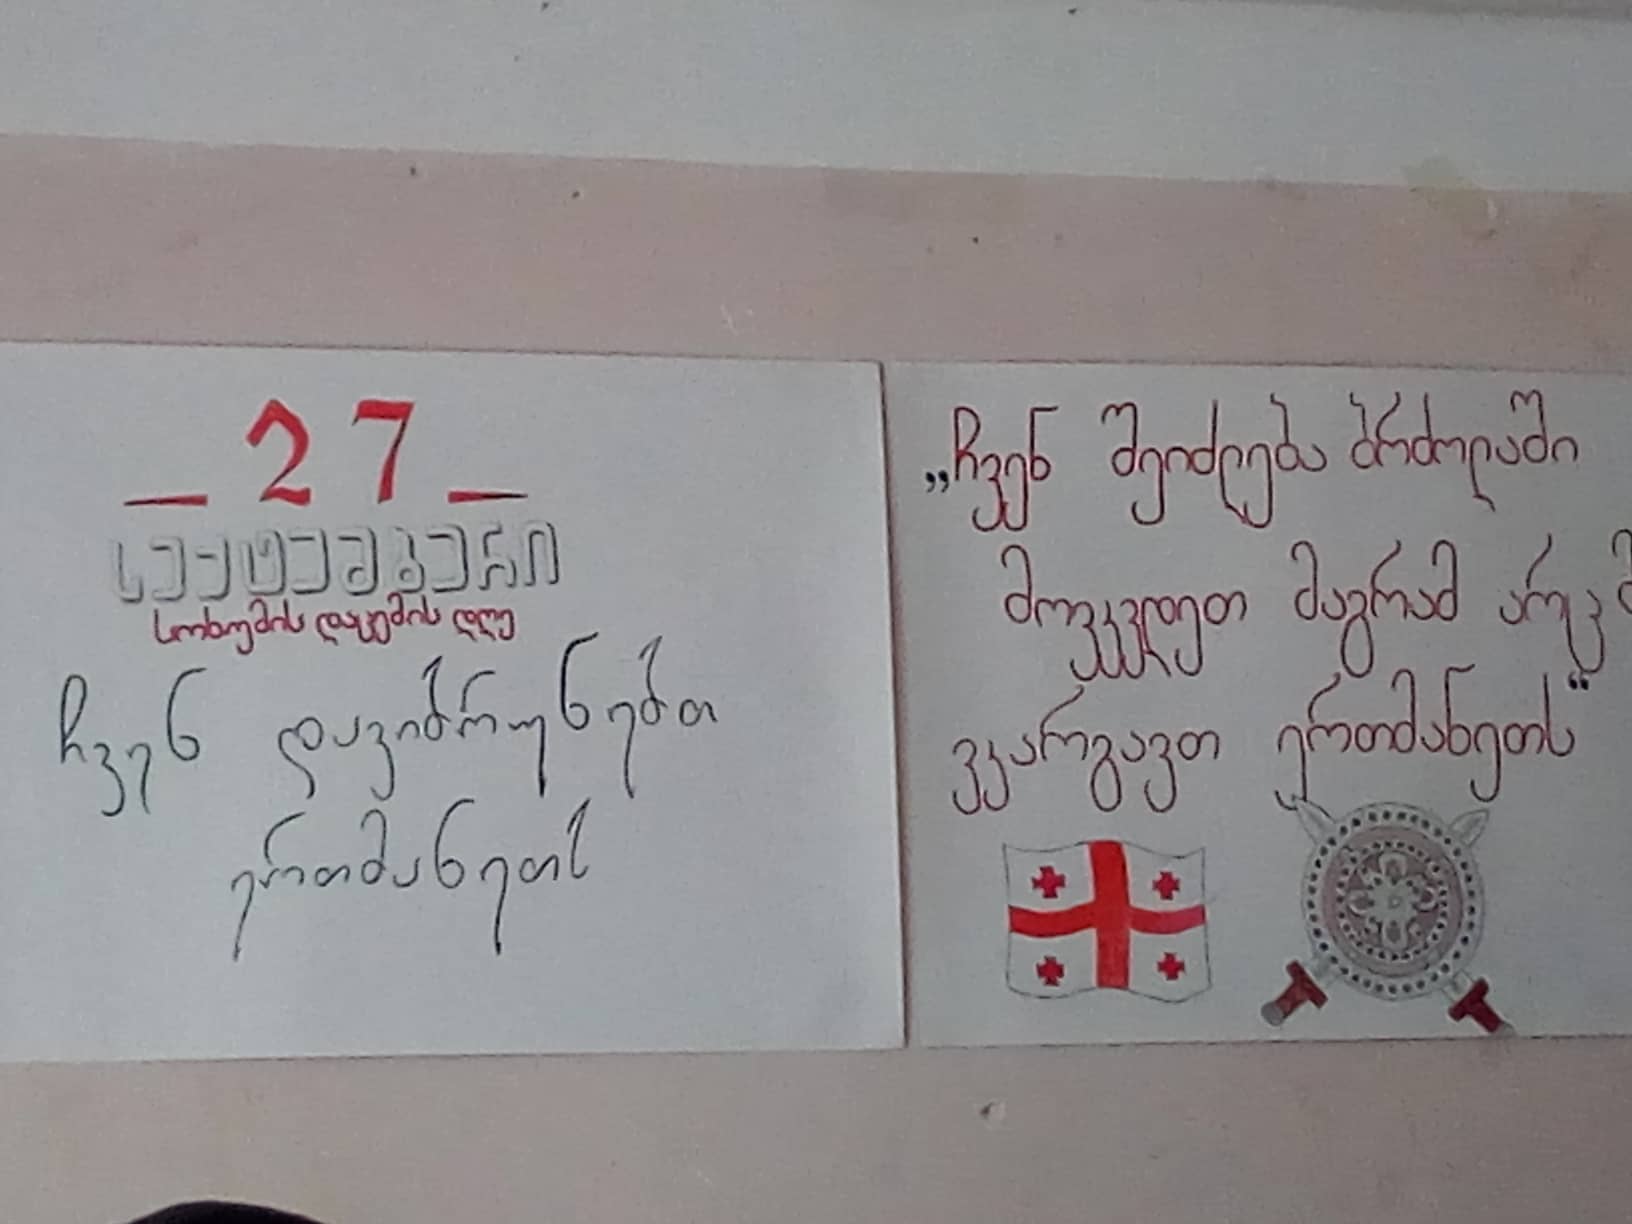 _27_
სექტემბერი
სოხუმის დაცემის დღე
ჩვენ დავიბრუნებთ
ერთმანეთს
„ჩვენ შეიძლება ბრძოლაში
მოვკვდეთ მაგრამ
ვკარგავთ ერთმანეთს“